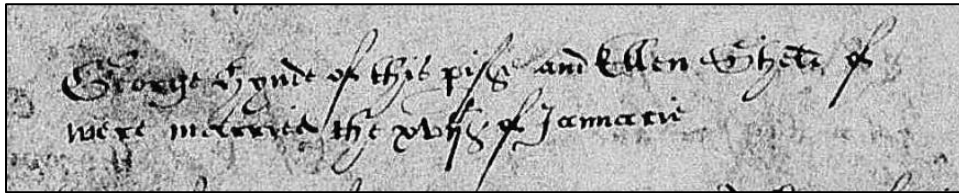 George Hynde of this pish and Ellen of
were married the xvijth of Januarie